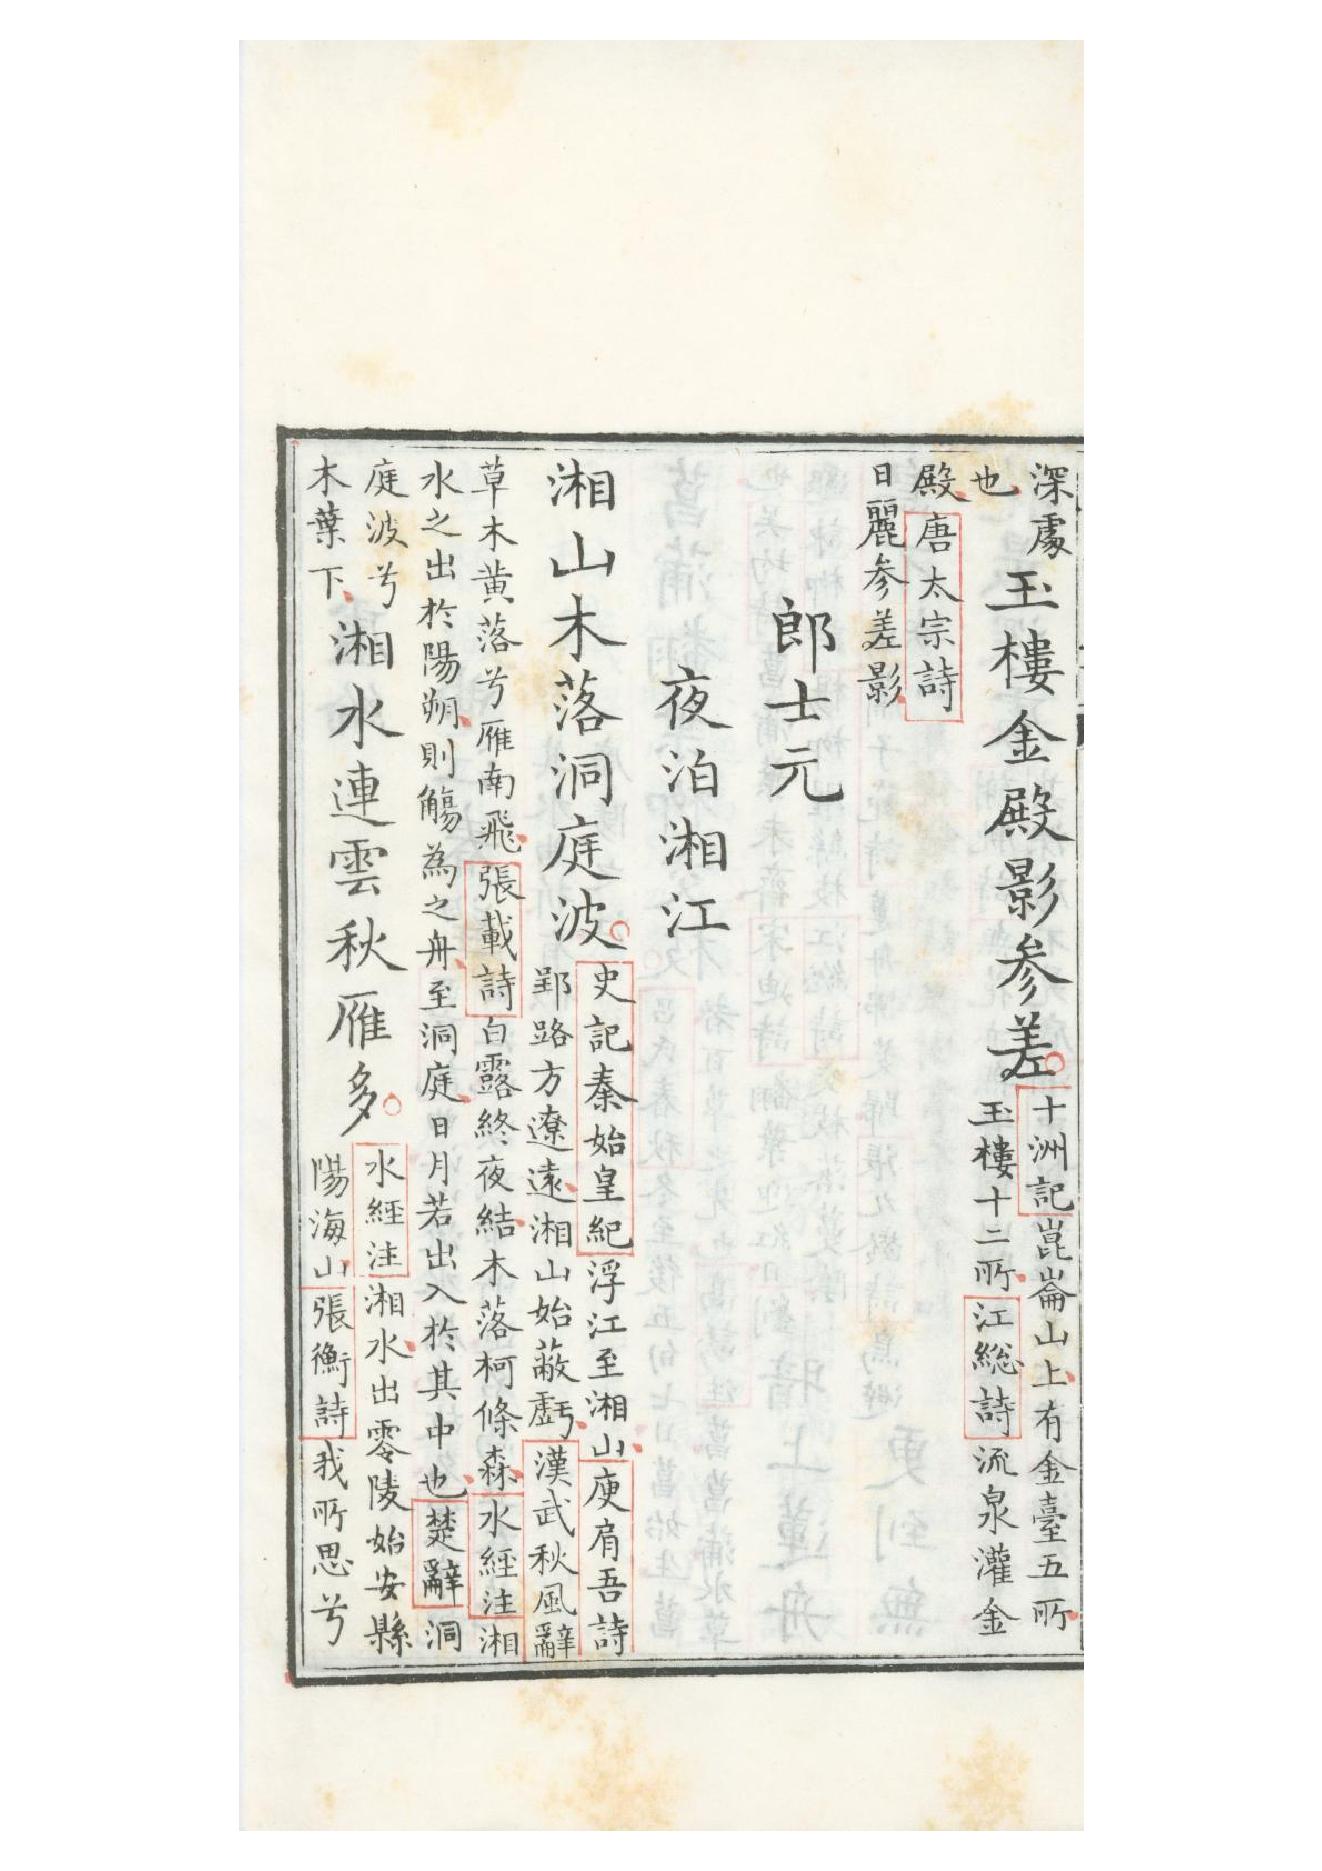 深處
也
玉樓金殿影參差
十洲記崑崙山上有金臺五所
玉樓十二所江総詩流泉灌金
殿唐太宗詩
日麗參差影
郎士元
夜泊湘江
湘山木落洞庭波
史記秦始皇紀浮江至湘山庾肩吾詩
郢路方遼遠湘山始蔽虧漢武秋風辭
草木黃落兮雁南飛張載詩白露終夜結木落柯條森水經注湘
水之出於陽朔則觴為之舟至洞庭日月若出入於其中也楚辭洞
庭波兮
木葉下
湘水連雲秋雁多
水經注湘水出零陵始安縣
陽海山張衡詩我所思兮